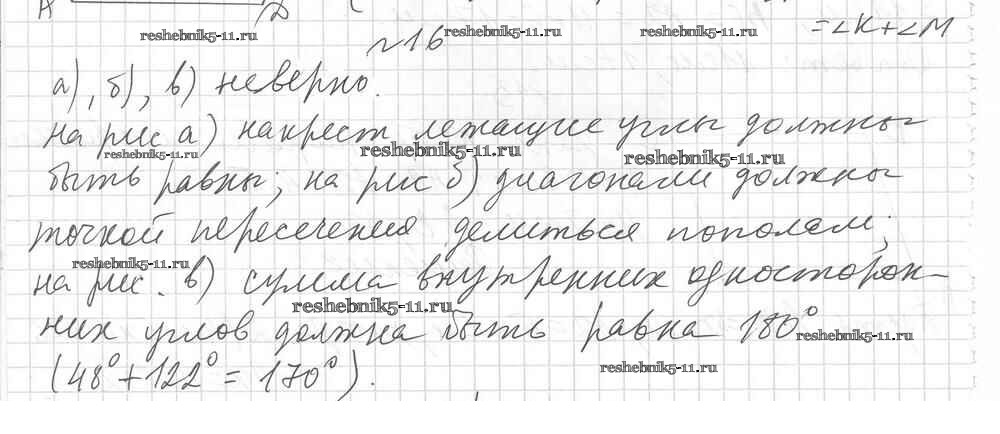 =∠K+∠M
№16
а), б), в) неверно.
На рис а) накрест лежащие углы должны
быть равны; на рис б) диагонали должны
точкой пересечения делиться пополам;
на рис. в) сумма внутренних односторон-
них углов должна быть равна 180°
(48°+122°=170°).
reshebnik5-11.ru
reshebnik5-11.ru
reshebnik5-11.ru
reshebnik5-11.ru
reshebnik5-11.ru
reshebnik5-11.ru
reshebnik5-11.ru
reshebnik5-11.ru
reshebnik5-11.ru
reshebnik5-11.ru